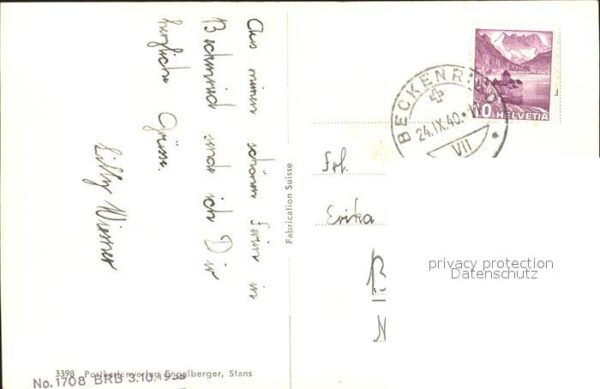 Aus meinen schönen Ferien in
Beckenried sende ich Dir
herzliche Grüsse.
Lilly Wiesner
Fabrication Suisse
BECKENRIED
24.IX.40.
VII
10 HELVETIA
Frl.
Erika
B
N
privacy protection
Datenschutz
3398 Postkartenverlag Engelberger, Stans
No. 1708 BRB 3.10.1939